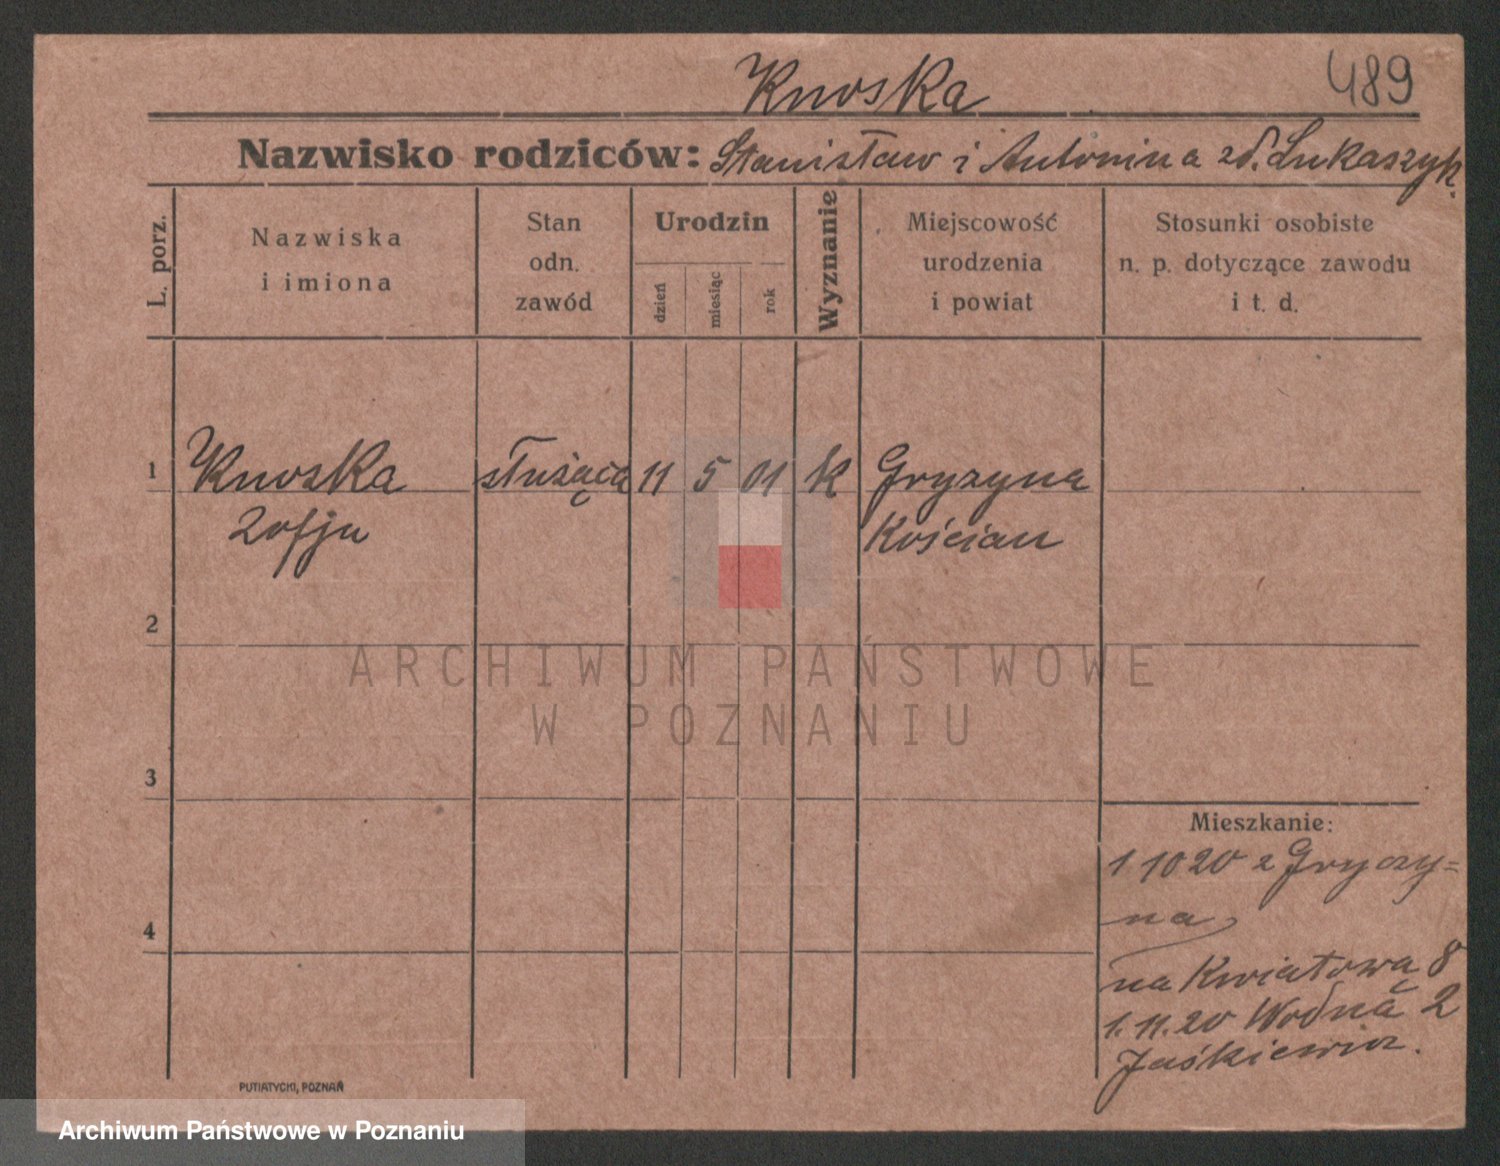 Knoska
489
Nazwisko rodziców: Stanisław i Antonina zd. Łukaszyk.
L. porz.
Nazwiska
i imiona
Stan
odn.
zawód
Urodzin
dzień
miesiąc
rok
Wyznanie
Miejscowość
urodzenia
i powiat
Stosunki osobiste
n. p. dotyczące zawodu
i t. d.
1 Knoska służąca 11 5 01 k Gryzyna
Zofja Kościan
2
3
4
Mieszkanie:
1.10 20 z Gryzy=
na
na Kwiatową 8
1. 11. 20 Wodna 2
Jaśkiewicz.
PUTIATYCKI, POZNAŃ
ARCHIWUM PAŃSTWOWE
W POZNANIU
Archiwum Państwowe w Poznaniu